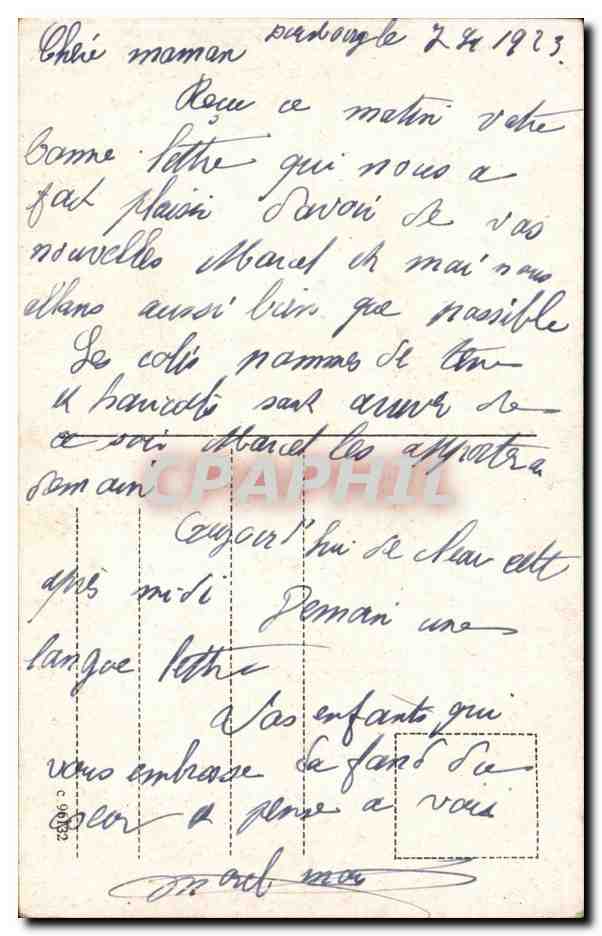 le 7 1923.
Chère maman
Reçu ce matin votre
bonne lettre qui nous a
fait plaisir d'avoir de vos
nouvelles Marcel et moi nous
allons aussi bien que possible
Les colis pommes de terre
et haricots sont arrivé de
ce soir Marcel les apportera
demain
CPAPHIL
Aujourd'hui de cette
après midi Demain une
longue lettre
Vos enfants qui
vous embrasse du fond du
coeur et pense a vous
C 96132